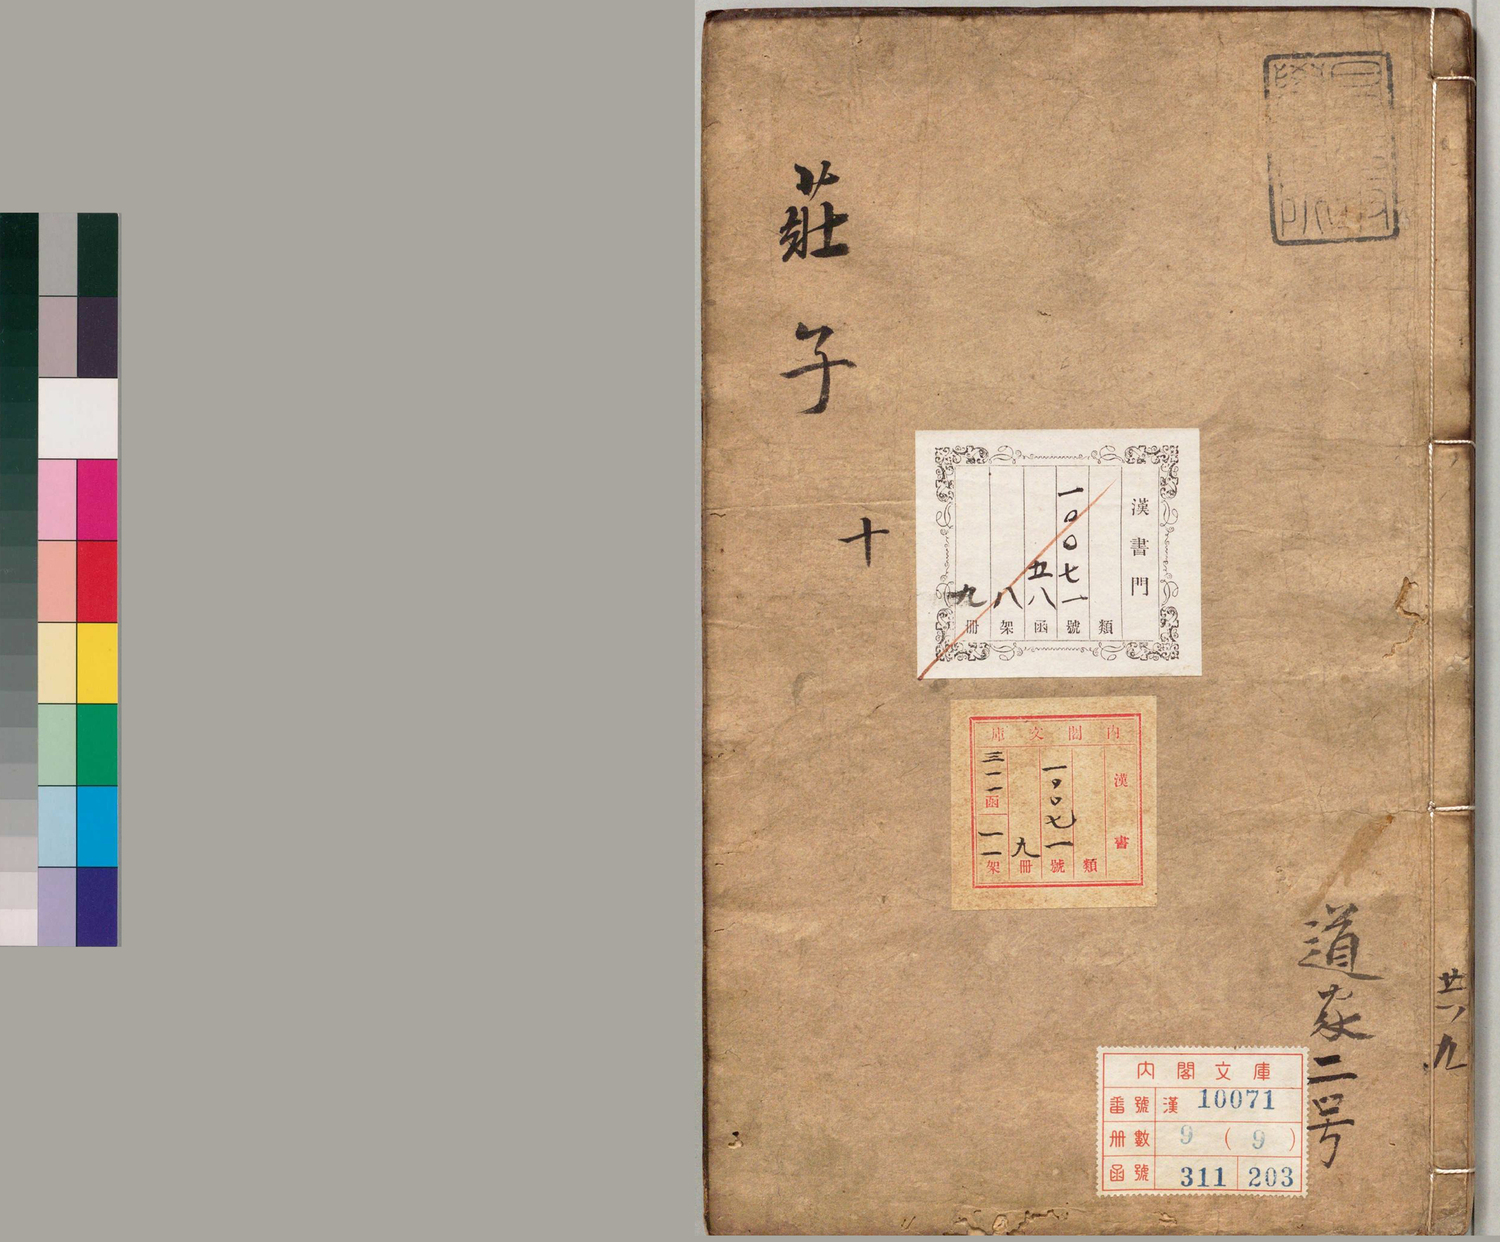 莊子
十
漢書門
類
一〇〇七一號
五八函
八架
九冊
內閣文庫
漢書
類
一〇〇七一號
九冊
三一一函
一一架
道家二号
廿八ノ九
內閣文庫
番號 漢 10071
冊數 9 (9)
函號 311 203